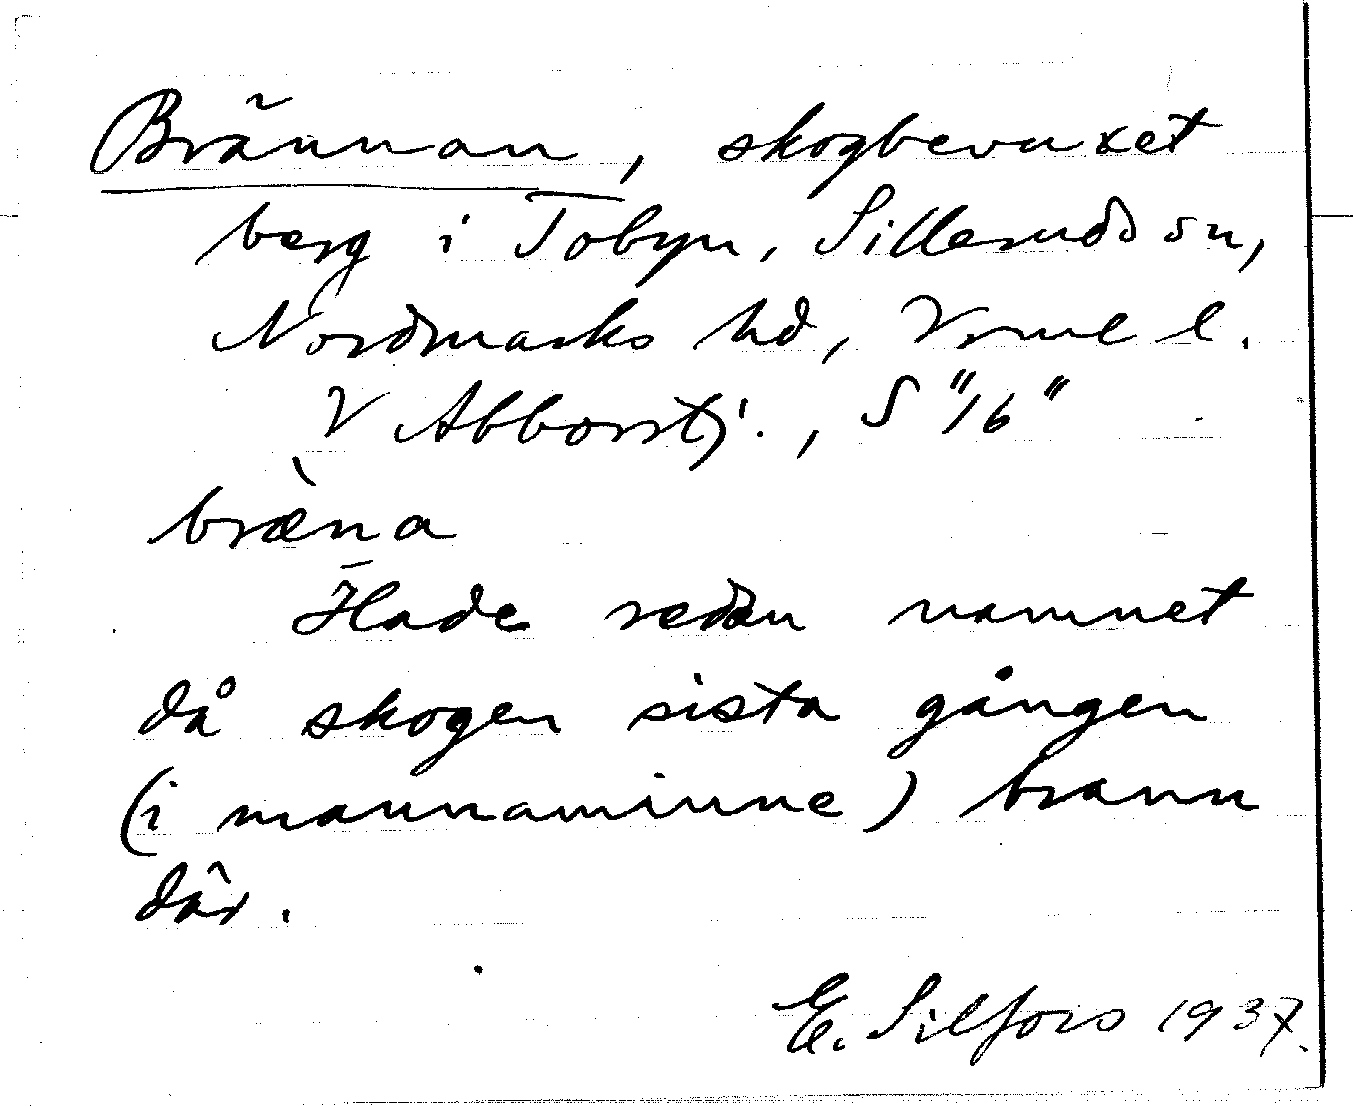 Brännan, skogbevuxet
berg i Tobyn, Silleruds sn,
Nordmarks hd, Vrml l.
V Abborrtj., S "/6"
bræ̀na
Hade redan namnet
då skogen sista gången
(i mannaminne) brann
där.
E. Silfors 1937.